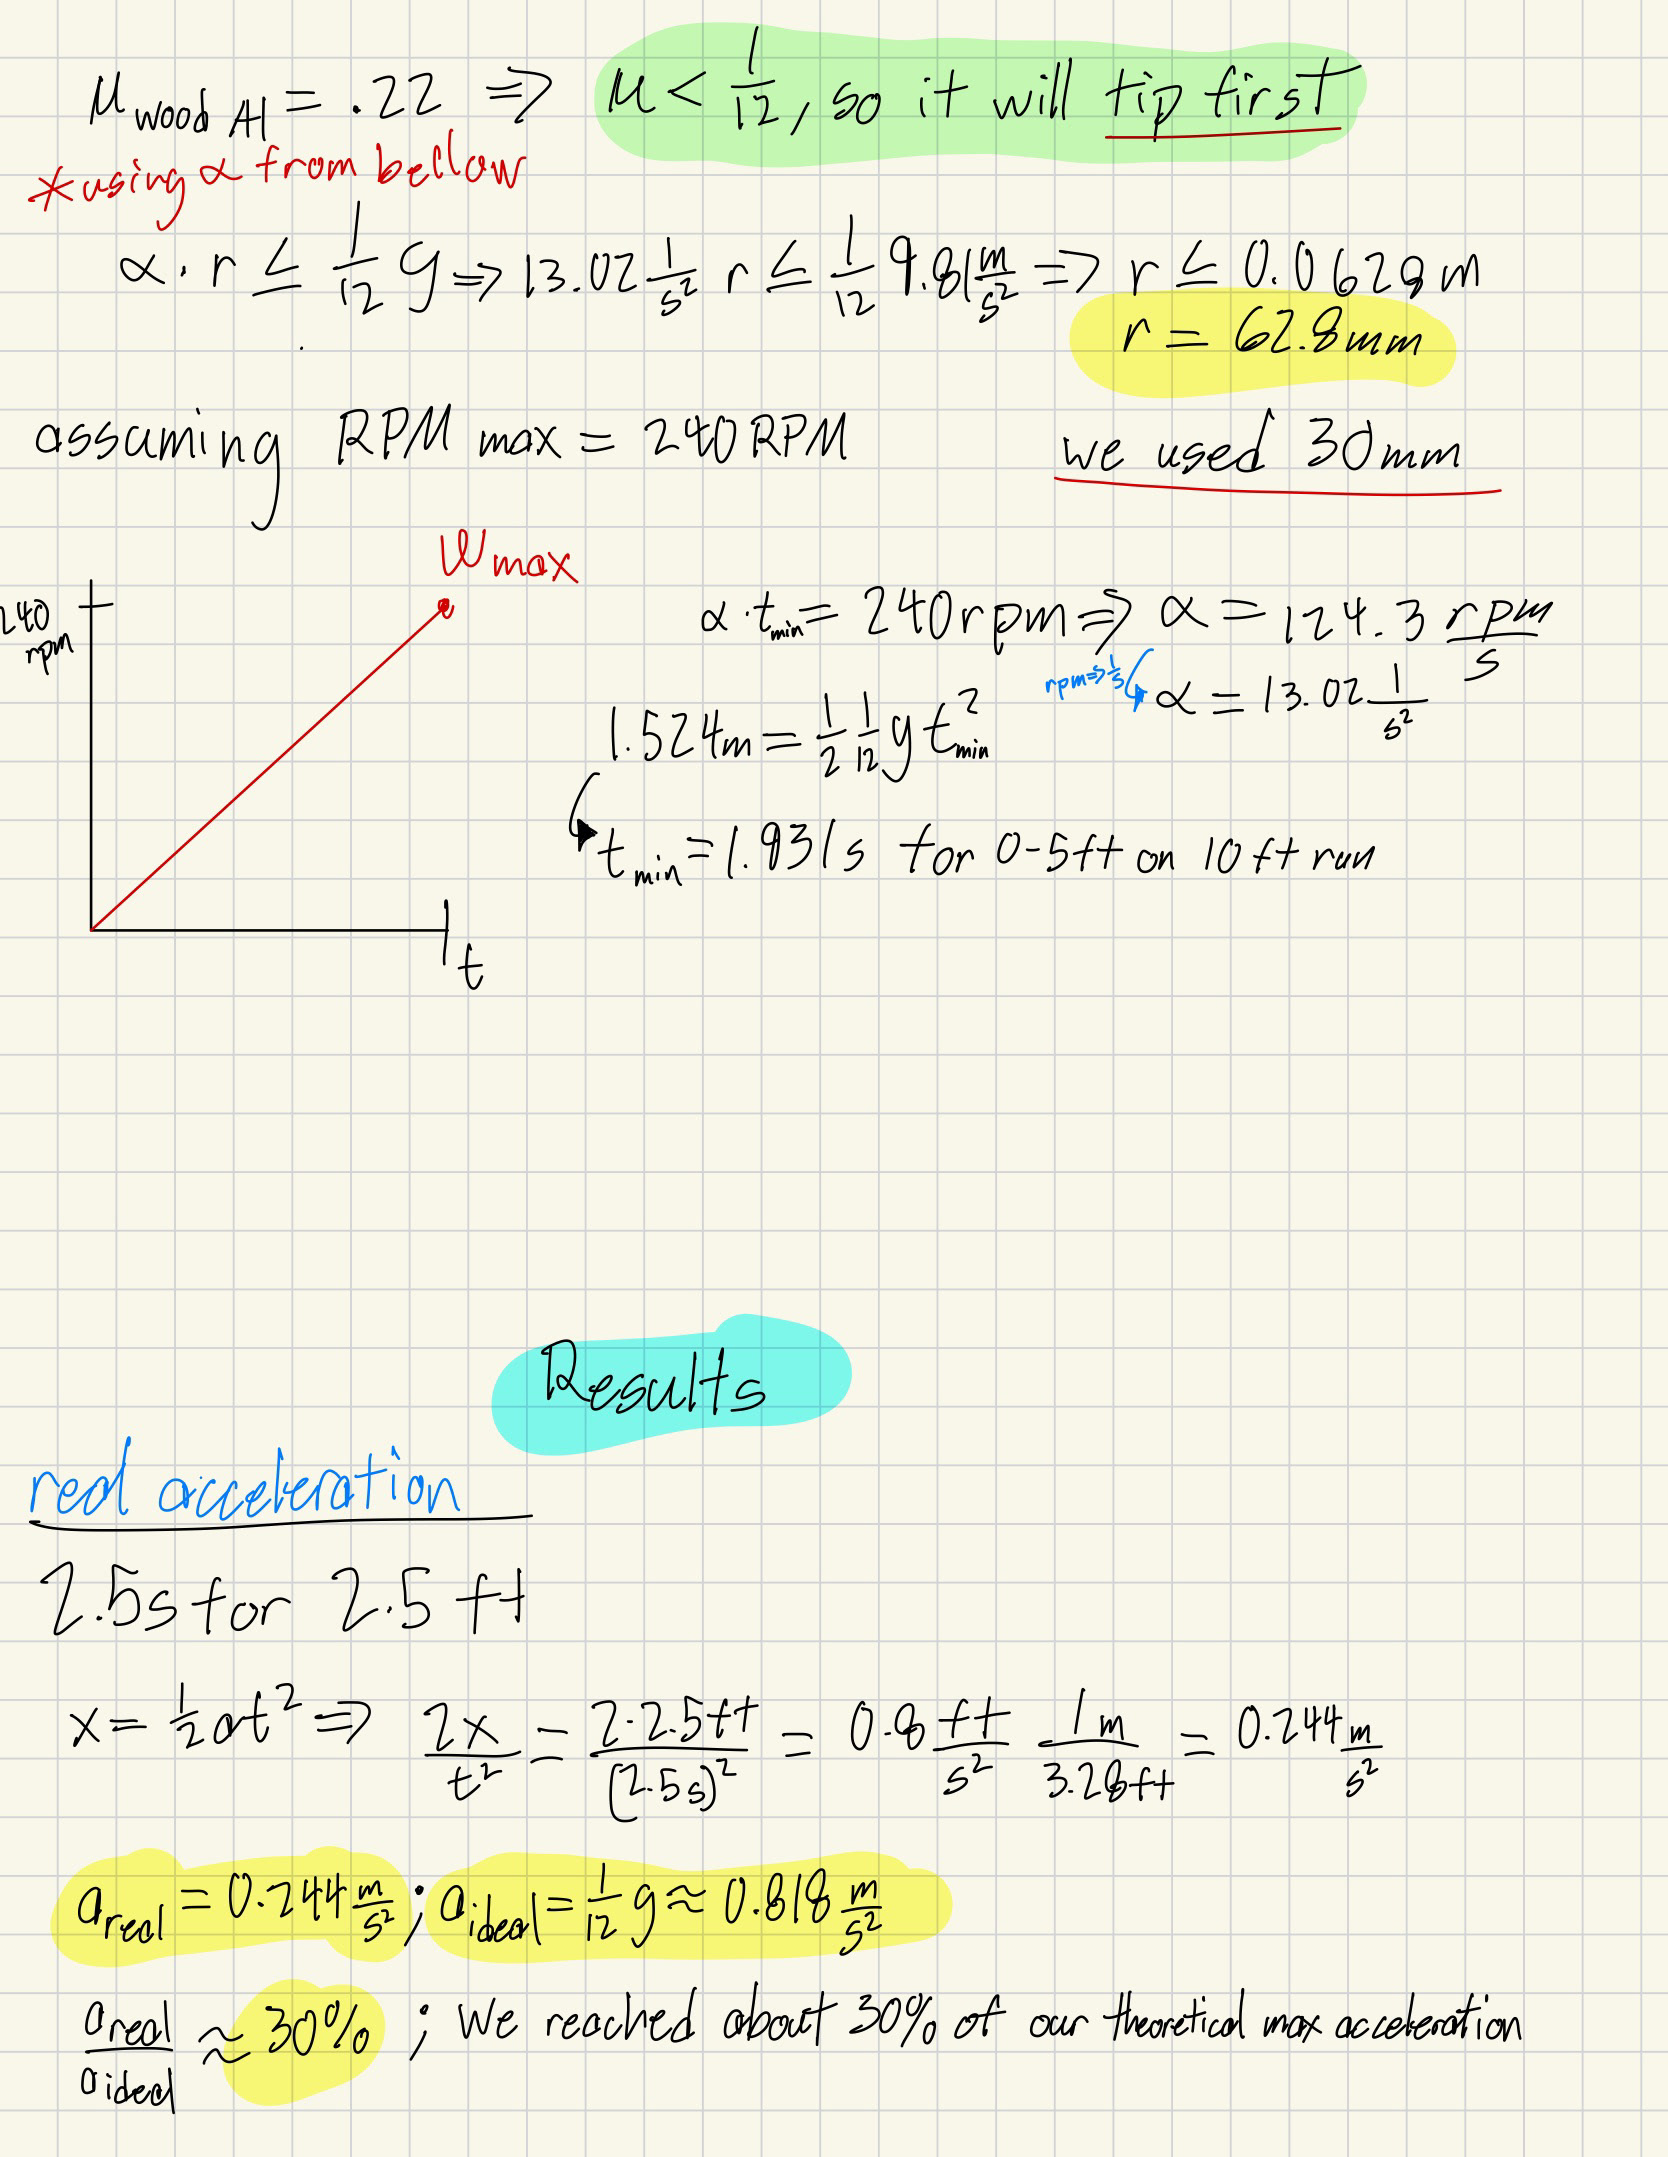 μ wood Al = .22 ⇒ μ < 1/12, so it will tip first
*using α from bellow
α · r ≤ 1/12 g ⇒ 13.02 1/s² r ≤ 1/12 9.81 m/s² ⇒ r ≤ 0.0628m
r = 62.8mm
assuming RPM max = 240RPM
we used 30mm
ωmax
240 rpm
t
α · tmin = 240rpm ⇒ α = 124.3 rpm/s
rpm⇒1/s α = 13.02 1/s²
1.524m = 1/2 1/12 g t²min
tmin = 1.931s for 0-5ft on 10ft run
Results
real acceleration
2.5s for 2.5 ft
x = 1/2 at² ⇒ 2x/t² = 2·2.5ft/(2.5s)² = 0.8 ft/s² 1m/3.28ft = 0.244 m/s²
areal = 0.244 m/s² ; aideal = 1/12 g ≈ 0.818 m/s²
areal/aideal ≈ 30% ; We reached about 30% of our theoretical max acceleration